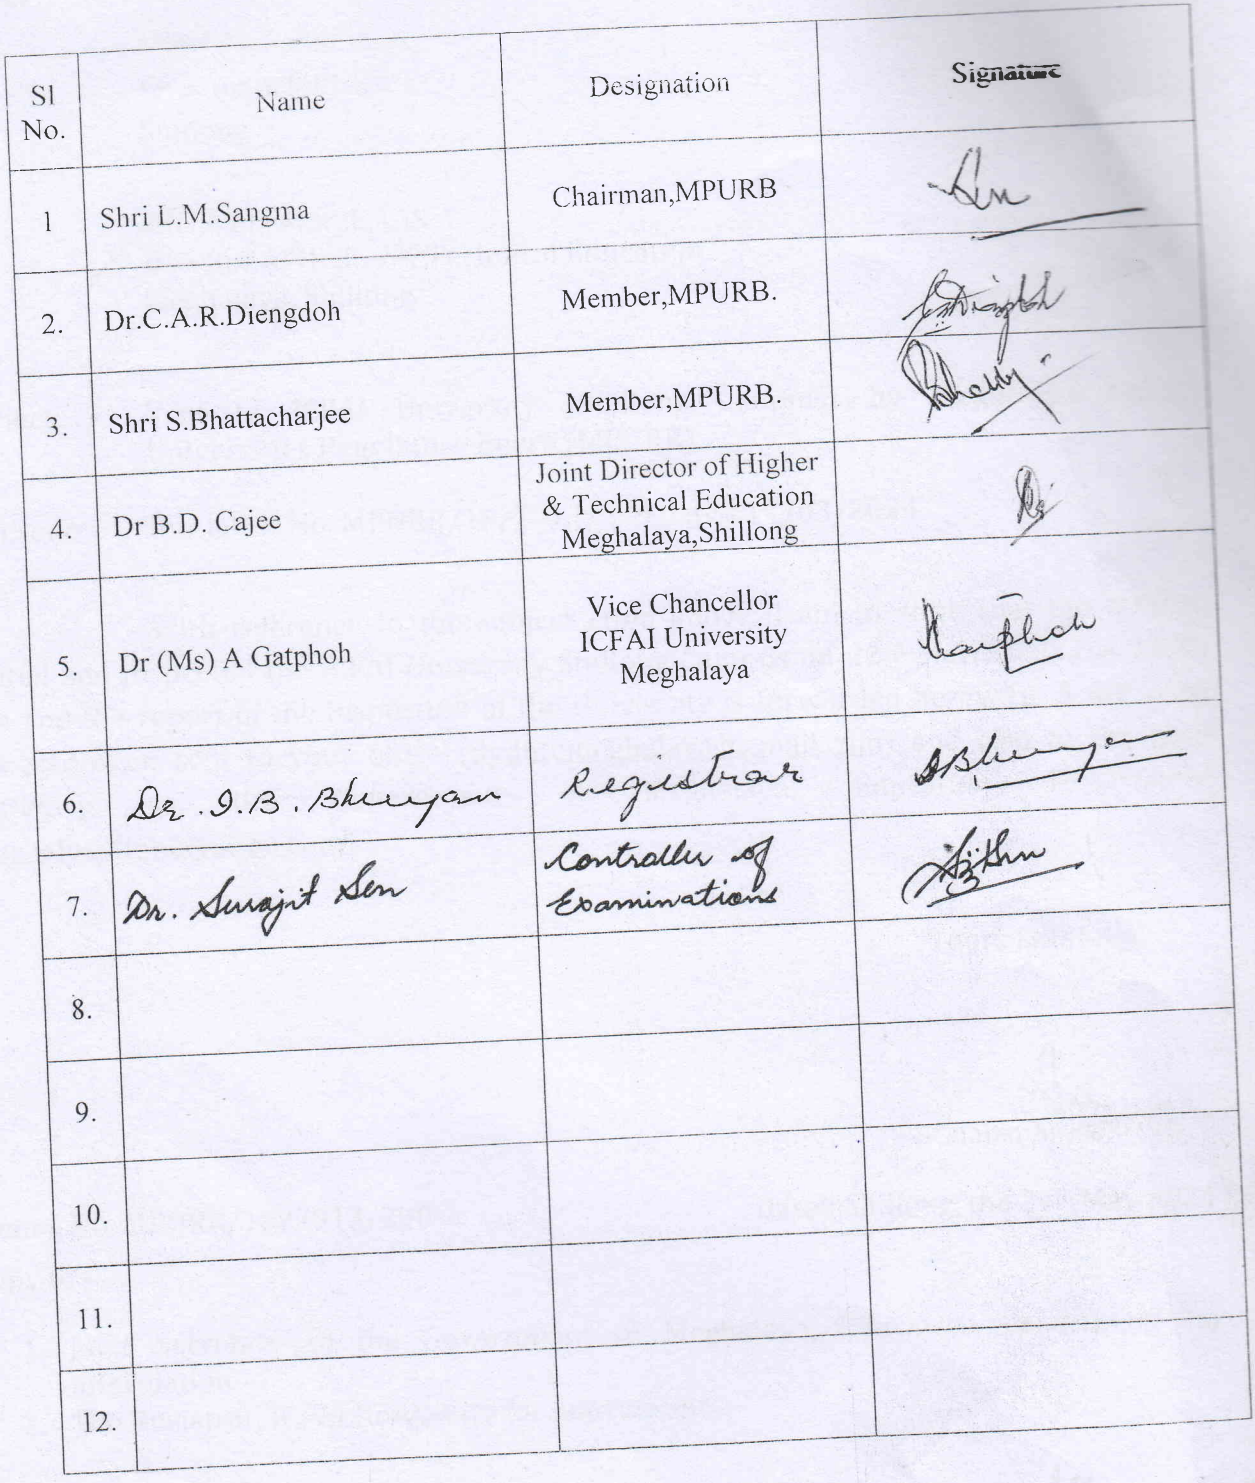 Sl No. Name Designation Signature
1 Shri L.M.Sangma Chairman,MPURB
2. Dr.C.A.R.Diengdoh Member,MPURB.
3. Shri S.Bhattacharjee Member,MPURB.
4. Dr B.D. Cajee Joint Director of Higher
& Technical Education
Meghalaya,Shillong
5. Dr (Ms) A Gatphoh Vice Chancellor
ICFAI University
Meghalaya
6. Dr. I.B. Bhuyan Registrar
7. Dr. Surajit Sen Controller of
Examinations
8.
9.
10.
11.
12.